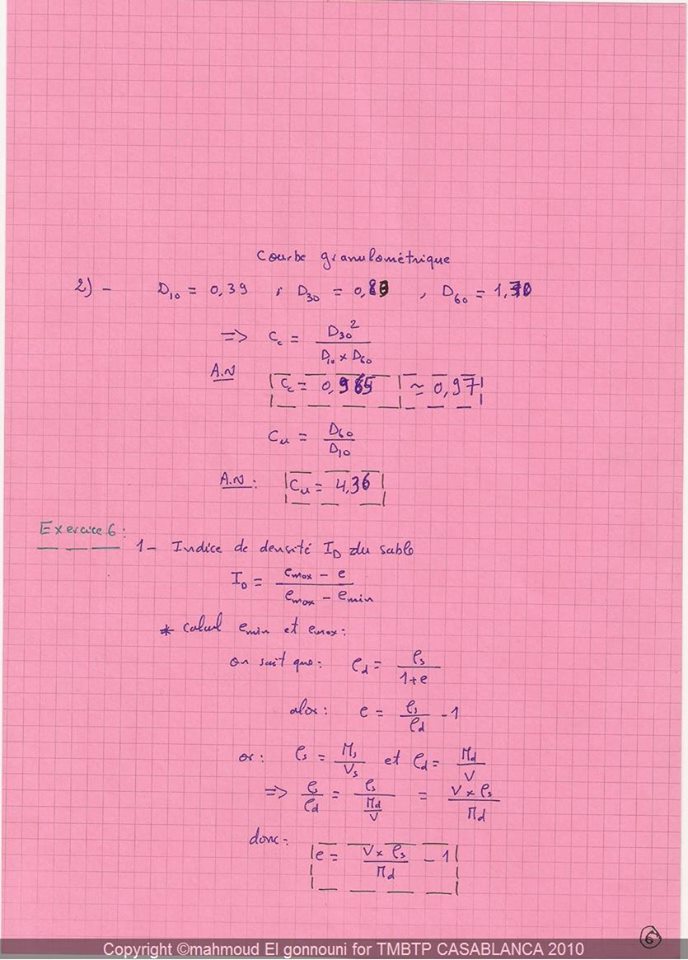 Courbe granulométrique
2) - D₁₀ = 0,39 ; D₃₀ = 0,80 , D₆₀ = 1,70
=> C_c = D₃₀² / (D₁₀ × D₆₀)
A.N
C_c = 0,965 ≃ 0,97
C_u = D₆₀ / D₁₀
A.N : C_u = 4,36
Exercice 6 :
1- Indice de densité I_D du sable
I_D = (e_max - e) / (e_max - e_min)
* calcul e_min et e_max :
on sait que : ρ_d = ρ_s / (1+e)
alor : e = ρ_s / ρ_d - 1
or : ρ_s = M_s / V_s et ρ_d = M_d / V
=> ρ_s / ρ_d = ρ_s / (M_d / V) = (V × ρ_s) / M_d
donc :
e = (V × ρ_s) / M_d - 1
6
Copyright ©mahmoud El gonnouni for TMBTP CASABLANCA 2010